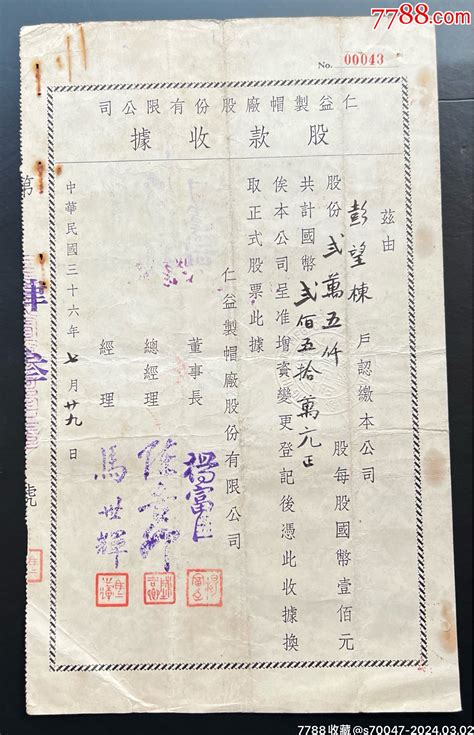 7788.com
No. 00043
仁益製帽廠股份有限公司
股款收據
茲由
彭望棟 戶認繳本公司
股份貳萬五仟 股每股國幣壹佰元
共計國幣貳佰五拾萬元正
俟本公司呈准增資變更登記後憑此收據換
取正式股票此據
仁益製帽廠股份有限公司
董事長
總經理
經理 馬世輝
中華民國三十六年七月廿九日
第
號
7788收藏@s70047-2024.03.02